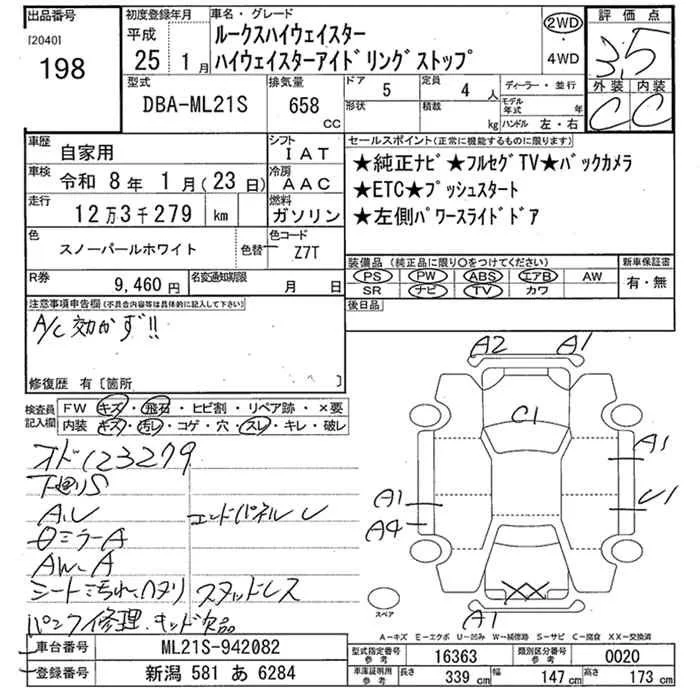 出品番号
[2040]
198
初度登録年月
平成
25 1月
車名・グレード
ルークスハイウェイスター
ハイウェイスターアイドリングストップ
2WD
・
4WD
評価点
3.5
外装 内装
C C
型式
DBA-ML21S
排気量
658
CC
ドア
5
形状
定員
4人
積載
kg
ディーラー・並行
モデル年式 年
ハンドル 左・右
車歴
自家用
シフト
IAT
車検
令和 8年 1月(23日)
冷房
AAC
走行
12万3千279 km
燃料
ガソリン
色
スノーパールホワイト
色替
色コード
Z7T
R券
9,460円
名変通知期限
月 日
セールスポイント(正常に機能するものに限ります)
★純正ナビ★フルセグTV★バックカメラ
★ETC★プッシュスタート
★左側パワースライドドア
装備品(純正品に限り○をつけてください)
PS PW ABS エアB AW
SR ナビ TV カワ
新車保証書
有・無
後日品
注意事項申告欄(不具合内容等は具体的に記入して下さい)
A/C 効かず!!
修復歴 有[箇所 ]
検査員記入欄
FW キズ・飛石・ヒビ割・リペア跡・×要
内装 キズ・汚レ・コゲ・穴・スレ・キレ・破レ
オド123279
下廻りS
A.U
エンドパネルU
ミラーA
AW.A
シート汚れ.ヘタリ
スタッドレス
パンク修理.キット欠品
A2
A1
C1
A1
U1
A1
A4
A1
スペア
A-キズ E-エクボ U-凹み W-補修跡 S-サビ C-腐食 XX-交換済
車台番号
ML21S-942082
登録番号
新潟 581 あ 6284
型式指定番号 参考
16363
類別区分番号 参考
0020
車庫証明用 参考
長さ 339 cm
幅 147 cm
高さ 173 cm